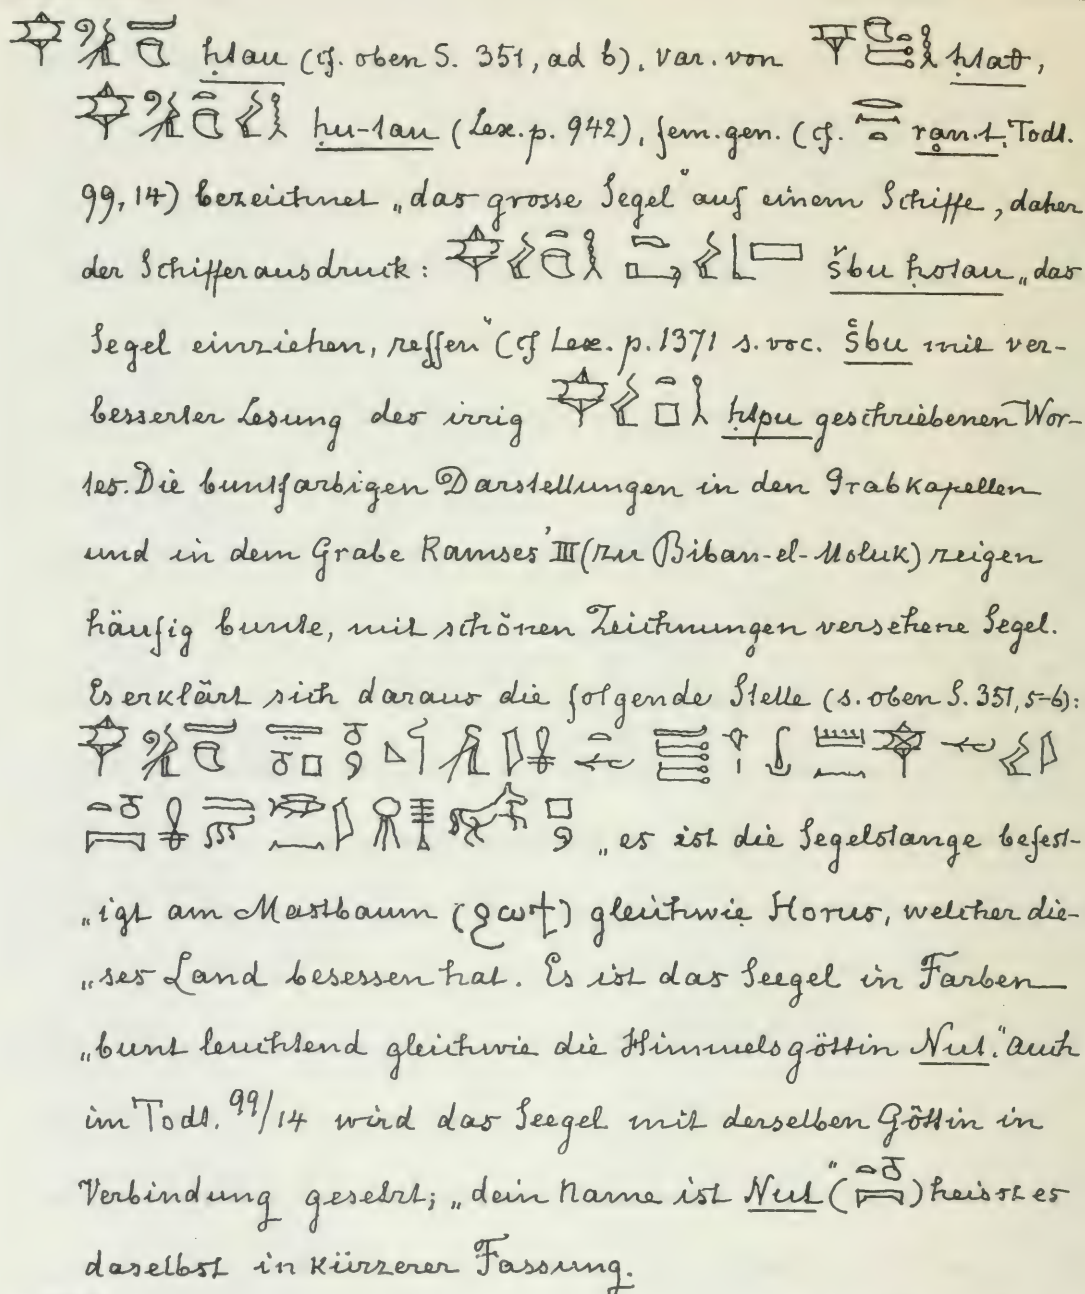 ḥtau (cf. oben S. 351, ad b), var. von ḥtaθ,
ḥu-tau (Lex. p. 942), fem. gen. (cf. Todt.
99, 14) bezeichnet „das grosse Segel" auf einem Schiffe, daher
der Schifferausdruck: šbu ḥotau „das
Segel einziehen, reffen" (cf Lex. p. 1371 s. voc. šbu mit ver-
besserter Lesung des irrig ḥtpu geschriebenen Wor-
tes. Die buntfarbigen Darstellungen in den Grabkapellen
und in dem Grabe Ramses' III (zu Biban-el-Moluk) zeigen
häufig bunte, mit schönen Zeichnungen versehene Segel.
Es erklärt sich daraus die folgende Stelle (s. oben S. 351, 5-6):
„es ist die Segelstange befest-
„igt am Mastbaum (ϩωϯ) gleichwie Horus, welcher die-
„ses Land besessen hat. Es ist das Seegel in Farben
„bunt leuchtend gleichwie die Himmelsgöttin Nut." auch
im Todt. 99/14 wird das Seegel mit derselben Göttin in
Verbindung gesetzt; „dein Name ist Nut" ( ) heisst es
daselbst in kürzerer Fassung.